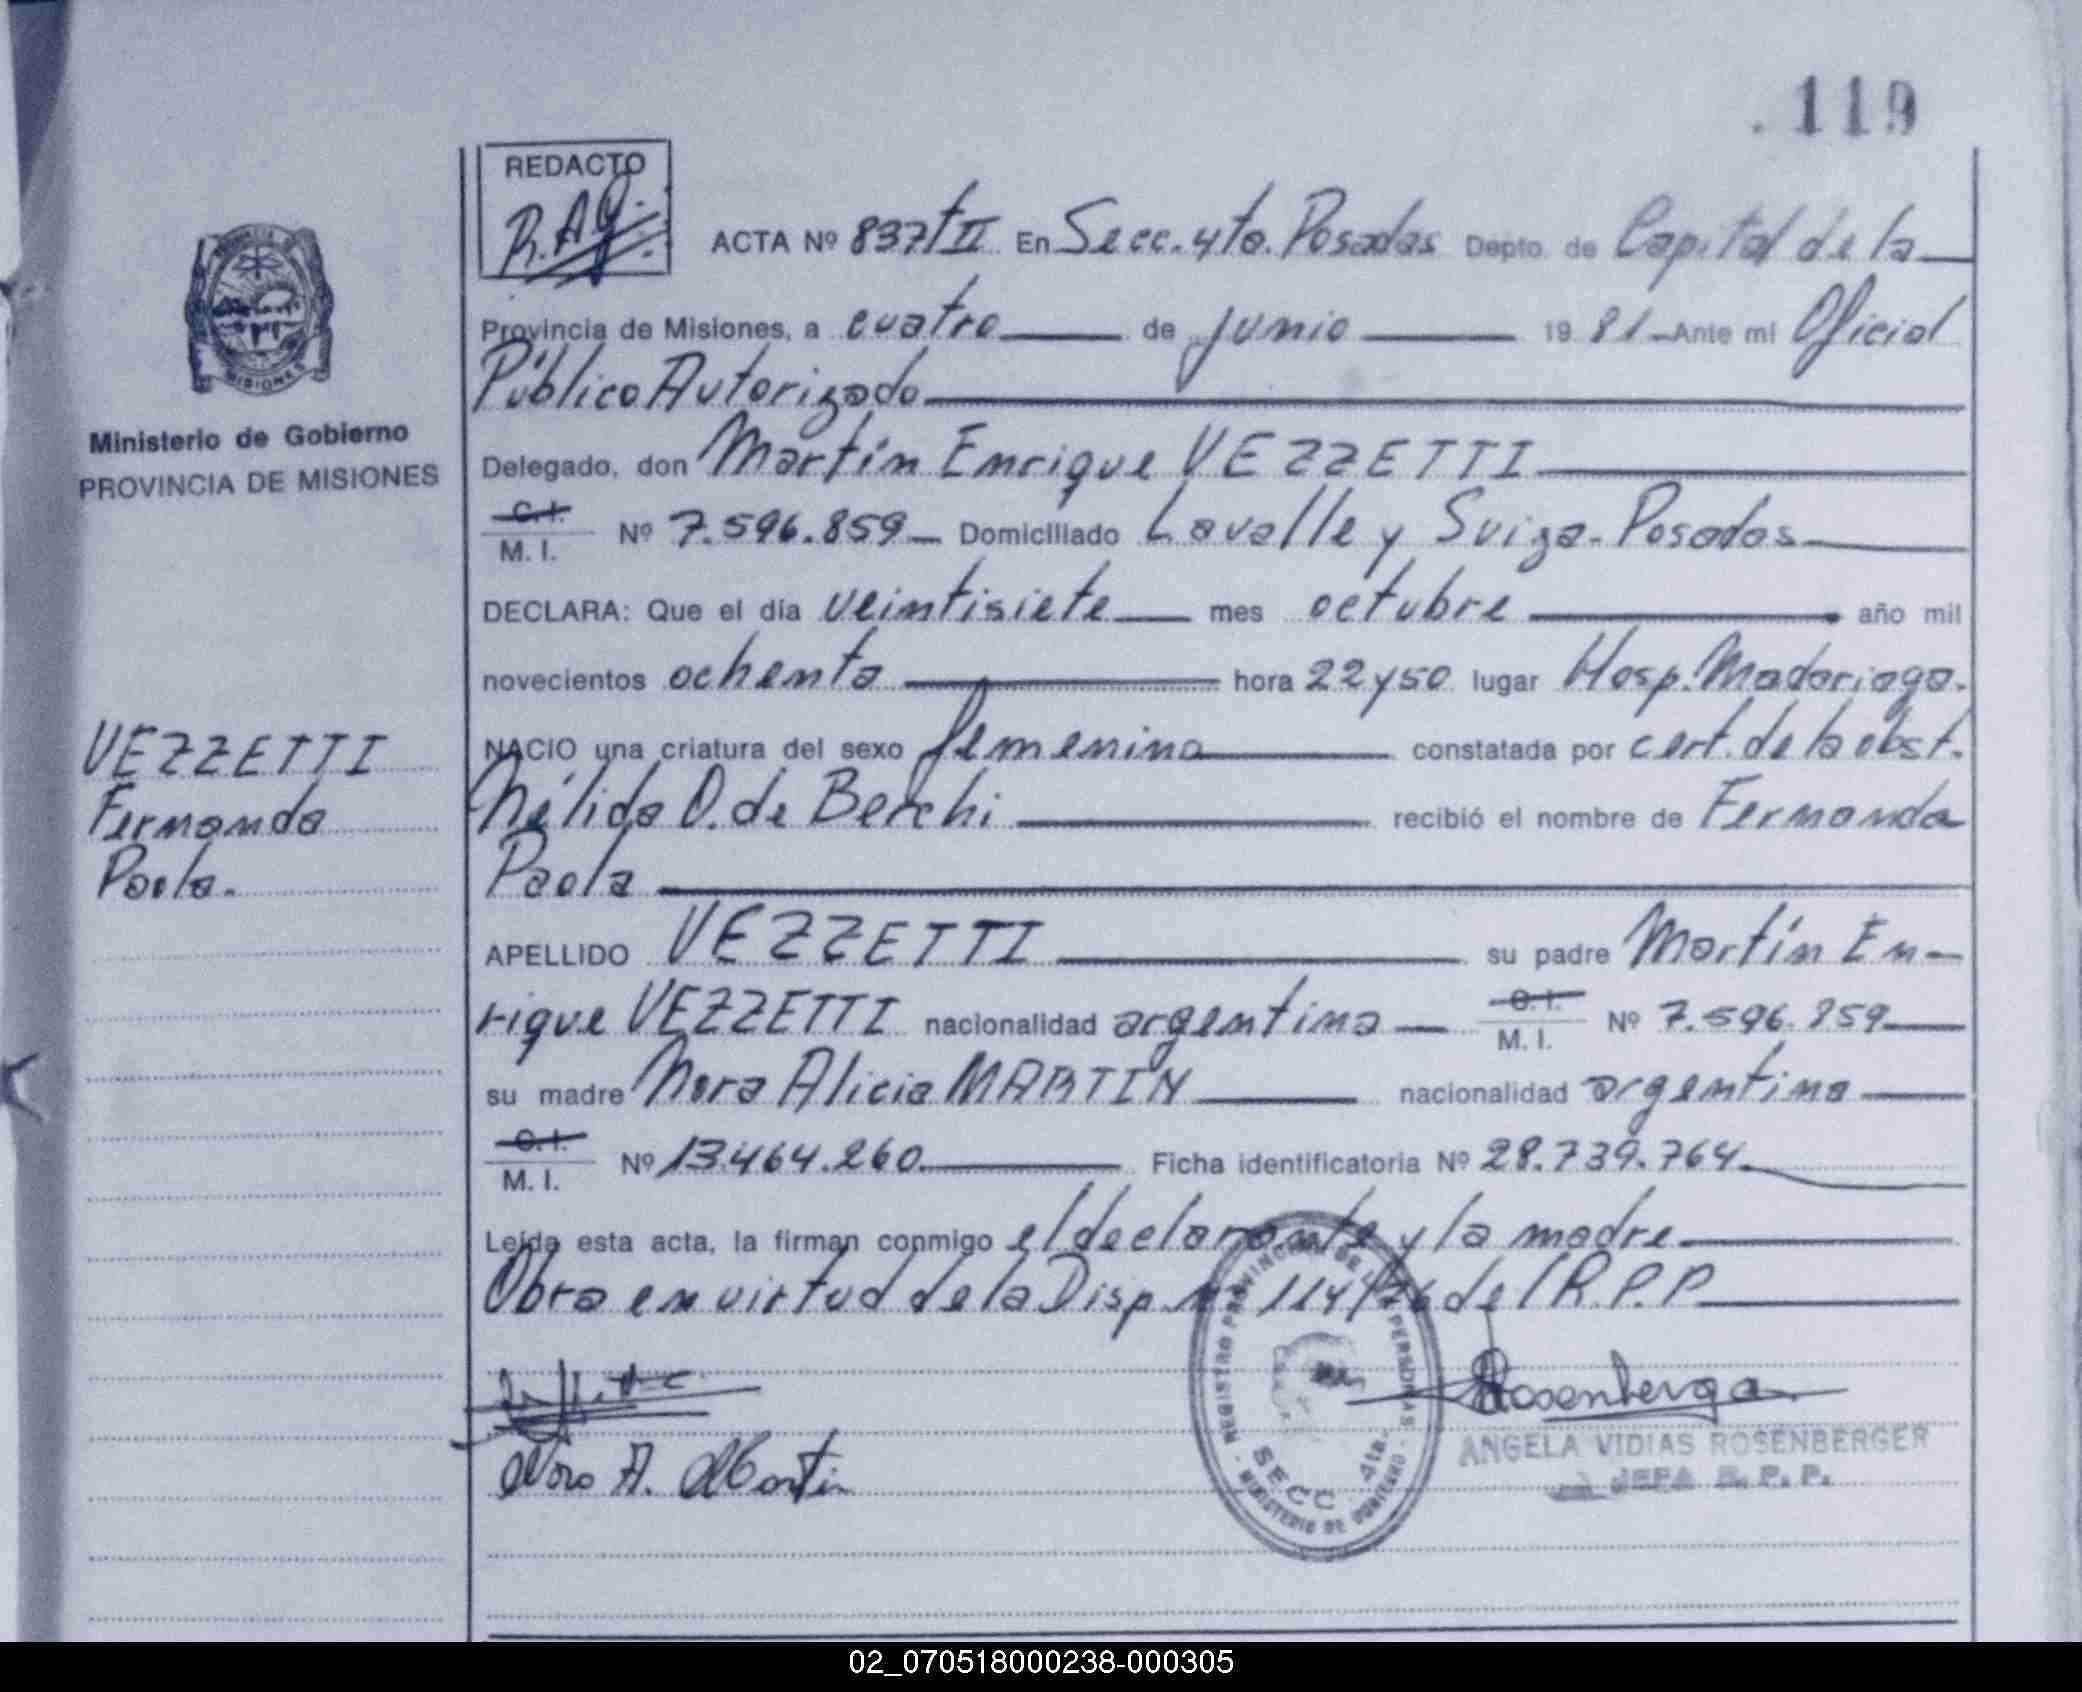 119
REDACTO
R.A.G.
ACTA Nº 837 t II En Secc. 4ta. Posadas Depto. de Capital de la
Provincia de Misiones, a cuatro de junio 1981 Ante mí Oficial
Público Autorizado
Delegado, don Martín Enrique VEZZETTI
C. I.
M. I. Nº 7.596.859 Domiciliado Lavalle y Suiza - Posadas
DECLARA: Que el día veintisiete mes octubre año mil
novecientos ochenta hora 22 y 50 lugar Hosp. Madariaga.
NACIO una criatura del sexo femenino constatada por cert. de la obst.
Nélida O. de Berchi recibió el nombre de Fernanda
Paola
APELLIDO VEZZETTI su padre Martín En-
rique VEZZETTI nacionalidad argentina C. I. M. I. Nº 7.596.859
su madre Nora Alicia MARTIN nacionalidad argentina
C. I.
M. I. Nº 13.464.260 Ficha identificatoria Nº 28.739.764
Leída esta acta, la firman conmigo el declarante y la madre
Obra en virtud de la Disp. Nº 114/76 del R.P.P
Nora A. Martin
Rosenberga
ANGELA VIDIAS ROSENBERGER
JEFA R. P. P.
REGISTRO PROVINCIAL DE LAS PERSONAS
SECC. 4ta.
MINISTERIO DE GOBIERNO
PROVINCIA DE
MISIONES
Ministerio de Gobierno
PROVINCIA DE MISIONES
VEZZETTI
Fernanda
Paola.
02_070518000238-000305